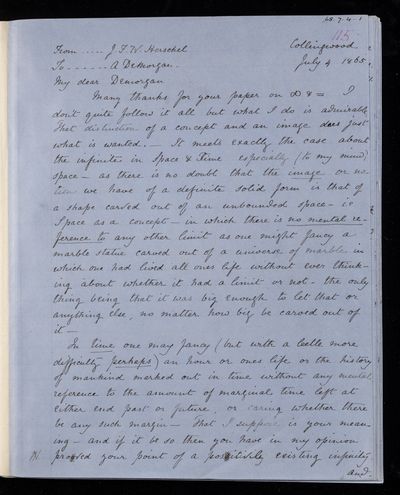 68.7.4.1
115
From ..... J. F. W. Herschel Collingwood
To ....... A DeMorgan. July 4 1865
My dear Demorgan
Many thanks for your paper on ∞ & = I
don't quite follow it all but what I do is admirable
That distinction of a concept and an image does just
what is wanted. — It meets exactly the case about
the infinites in Space & Time especially (to my mind)
space — as there is no doubt that the image or no-
tion we have of a definite solid form is that of
a shape carved out of an unbounded space — ie
Space as a concept — in which there is no mental re-
ference to any other limit as one might fancy a
marble statue carved out of a universe of marble in
which one had lived all ones life without ever think-
ing about whether it had a limit or not — the only
thing being that it was big enough to let that or
anything else, no matter how big be carved out of
it —
In time one may fancy (but with a leetle more
difficulty perhaps) an hour or ones life or the history
of mankind marked out in time without any mental
reference to the amount of marginal time left at
either end past or future, or caring whether there
be any such margin — That I suppose is your mean-
ing — and if it be so then you have in my opinion
proved your point of a positively existing infinity
and